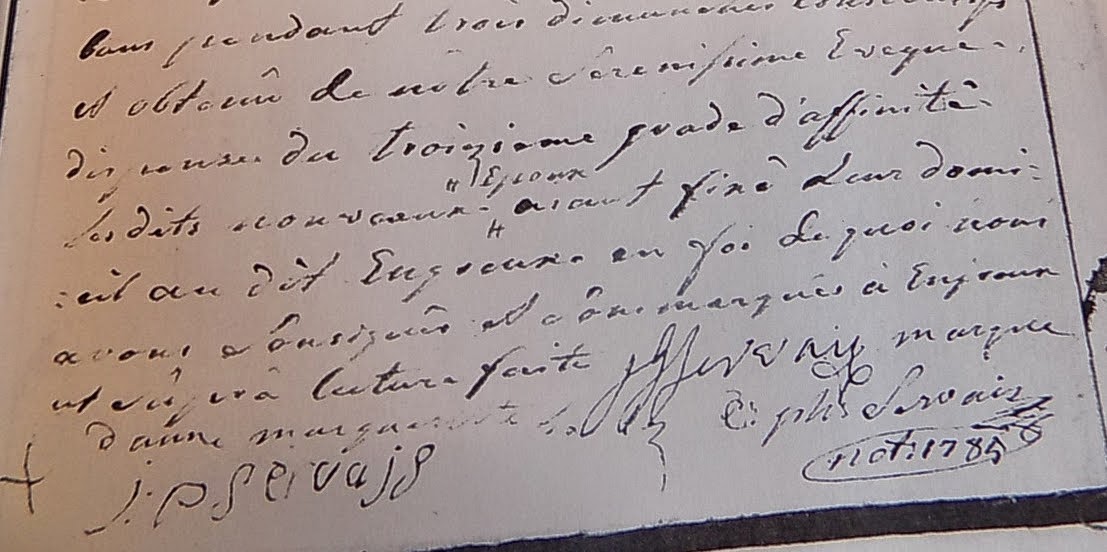 bans pendant trois dimanches consecutifs
et obtenû de nôtre Serenissime Eveque
dispense du troizieme grade d'affinité
" Epoux
lesdits nouveaux " aiant fixé leur domi-
:cil au dit Engreux en foi de quoi nous
avons Sousignés et sôumarqués à Enjreux
ut suprà lecture faite JJ Servais marque
d'anne marguerite
C: ph: Servais
+ J: P Servajs
not: 1785